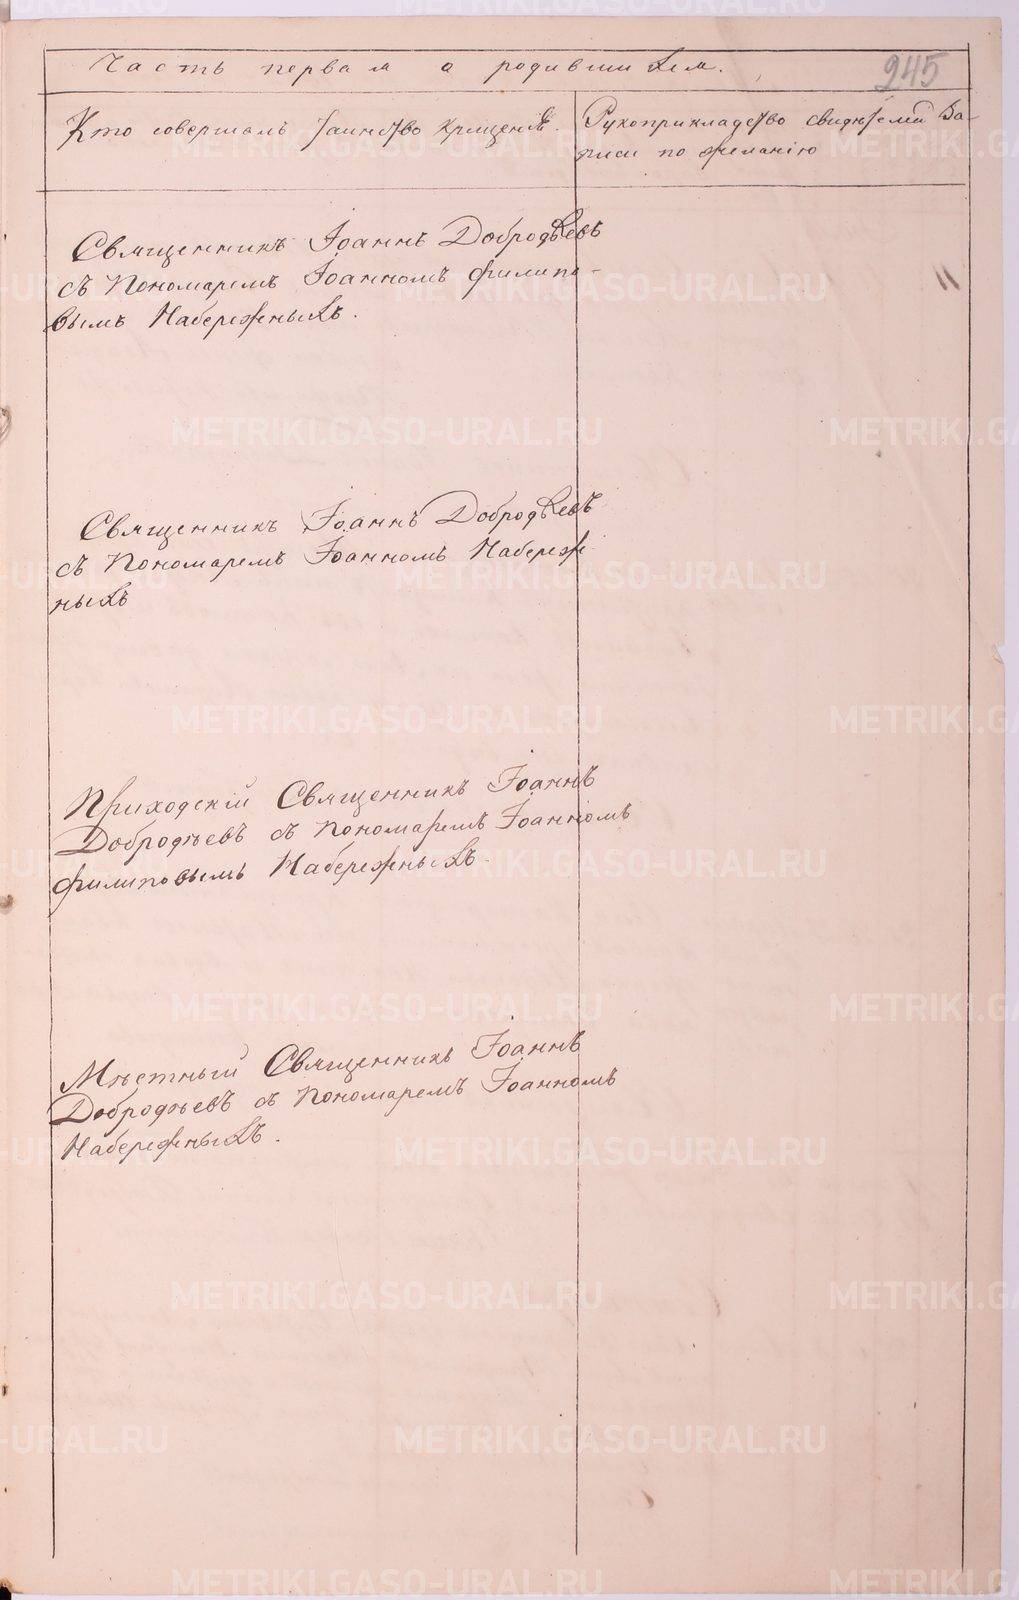 Часть первая о родившихся.
245
Кто совершалъ Таинство крещенія.
Рукоприкладство свидѣтелей За-
писи по желанію
Священникъ Іоаннъ Добродѣевъ
съ Пономаремъ Іоанномъ Филипо-
вымъ Набережныхъ.
11
Священникъ Іоаннъ Добродѣевъ
съ Пономаремъ Іоанномъ Набереж
ныхъ
Приходскій Священникъ Іоаннъ
Добродѣевъ съ Пономаремъ Іоанномъ
Филиповымъ Набережныхъ.
Мѣстный Священникъ Іоаннъ
Добродѣевъ съ Пономаремъ Іоанномъ
Набережныхъ.
METRIKI.GASO-URAL.RU